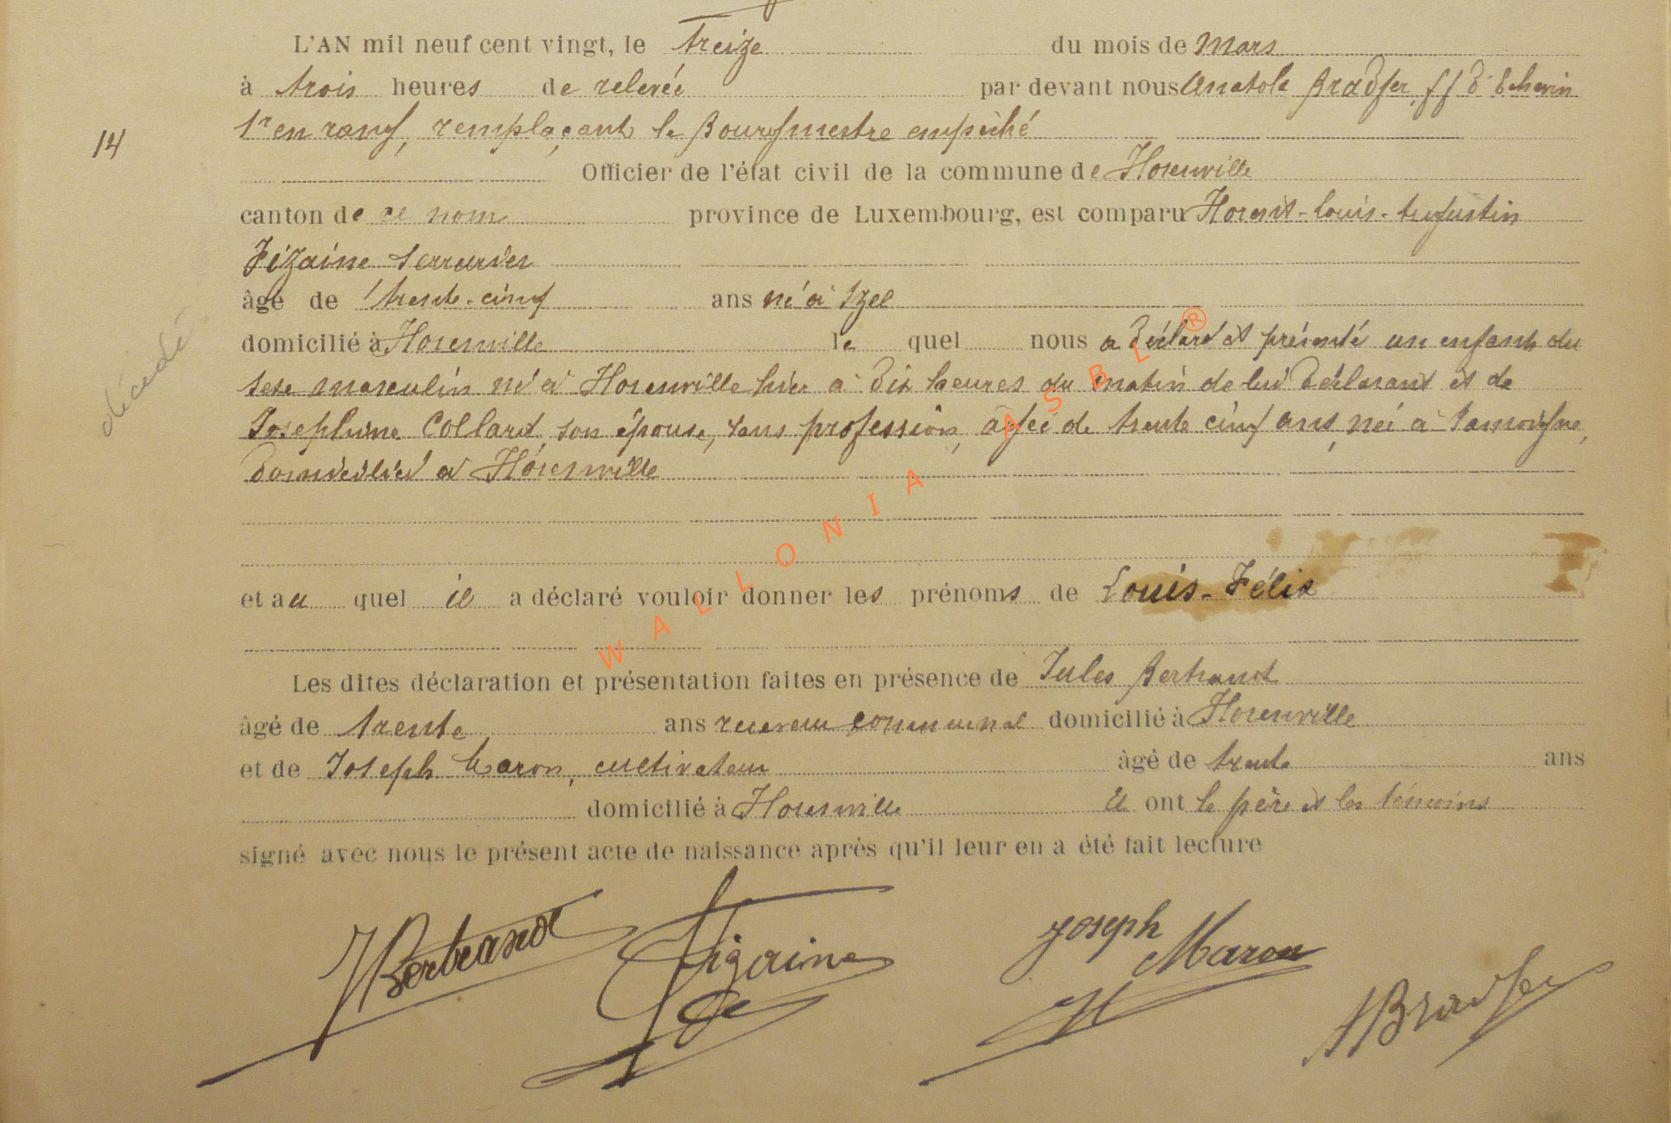 L'AN mil neuf cent vingt, le treize du mois de Mars
à trois heures de relevée par devant nous Anatole Bradfer, ff d'Echevin
1r en rang, remplaçant le Bourgmestre empêché
14
Officier de l'état civil de la commune de
canton de ce nom province de Luxembourg, est comparu Louis-Augustin
Fizaine serrurier
âgé de trente-cinq ans né à Izel
domicilié à le quel nous a déclaré et présenté un enfant du
décédé
sexe masculin né à hier à dix heures du matin de lui déclarant et de
Josephine Collard, son épouse, sans profession, âgée de trente cinq ans, née à Jamoigne,
domiciliée à
et au quel il a déclaré vouloir donner les prénoms de Louis-Félix
Les dites déclaration et présentation faites en présence de Jules Bertrand
âgé de trente ans receveur communal domicilié à
et de Joseph Maron, cultivateur âgé de trente ans
domicilié à et ont le père et les témoins
signé avec nous le présent acte de naissance après qu'il leur en a été fait lecture
JBertrand Fizaine Joseph Maron ABradfer
WALLONIA ASBL ®